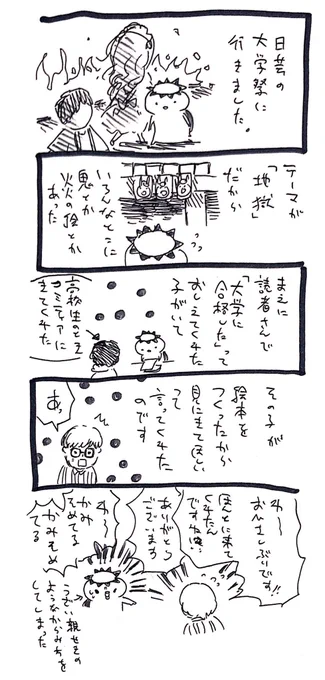 日芸の
大学祭に
行きました。
テーマが
「地獄」
だから
いろんなとこに
鬼とか
火の絵とか
あった
まえに
読者さんで
「大学に
合格した」って
おしえてくれた
子がいて
高校生のとき
コミティアに
きてくれた
その子が
絵本を
つくったから
見にきてほしい
って
言ってくれた
のです
あっ
わ〜
おひさしぶりです!!
ほんとに来て
くれたん
ですね
ありがとう
ございます
わ〜
かみ
そめてる
かみそめ
てる
って、親せきの
ようなからみ方を
してしまった